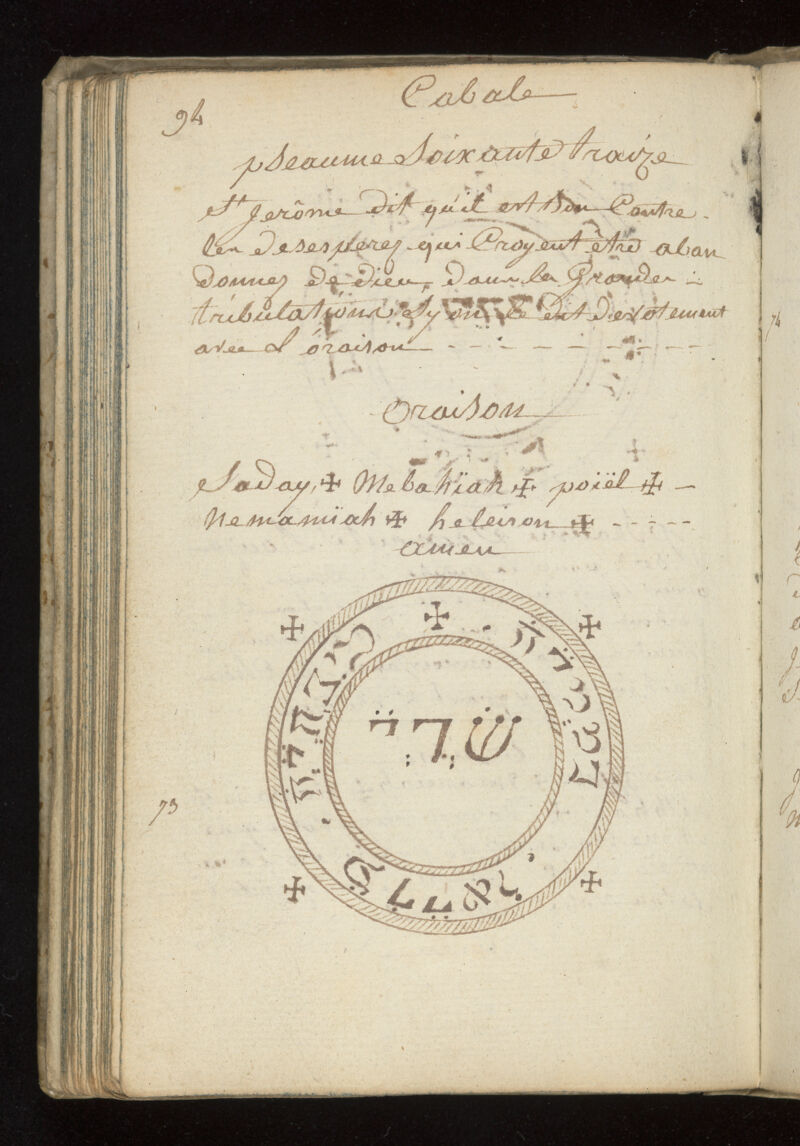 94
Cabale
pseaume Soixante traize
St Jerôme dit qu'il est bon Contre
les desesperez qui Croyent être aban
donnez de dieu, dans les Grandes
tribulations Sy on le dit devotement
avec l'óraison
Oraison
Saday, ✠ Mebahïah ✠ poïël ✠ –
Nemamïah ✠ heleison ✠ - - - - -
amen
✠ ✠ ✠
שדי
73
✠ ✠
74